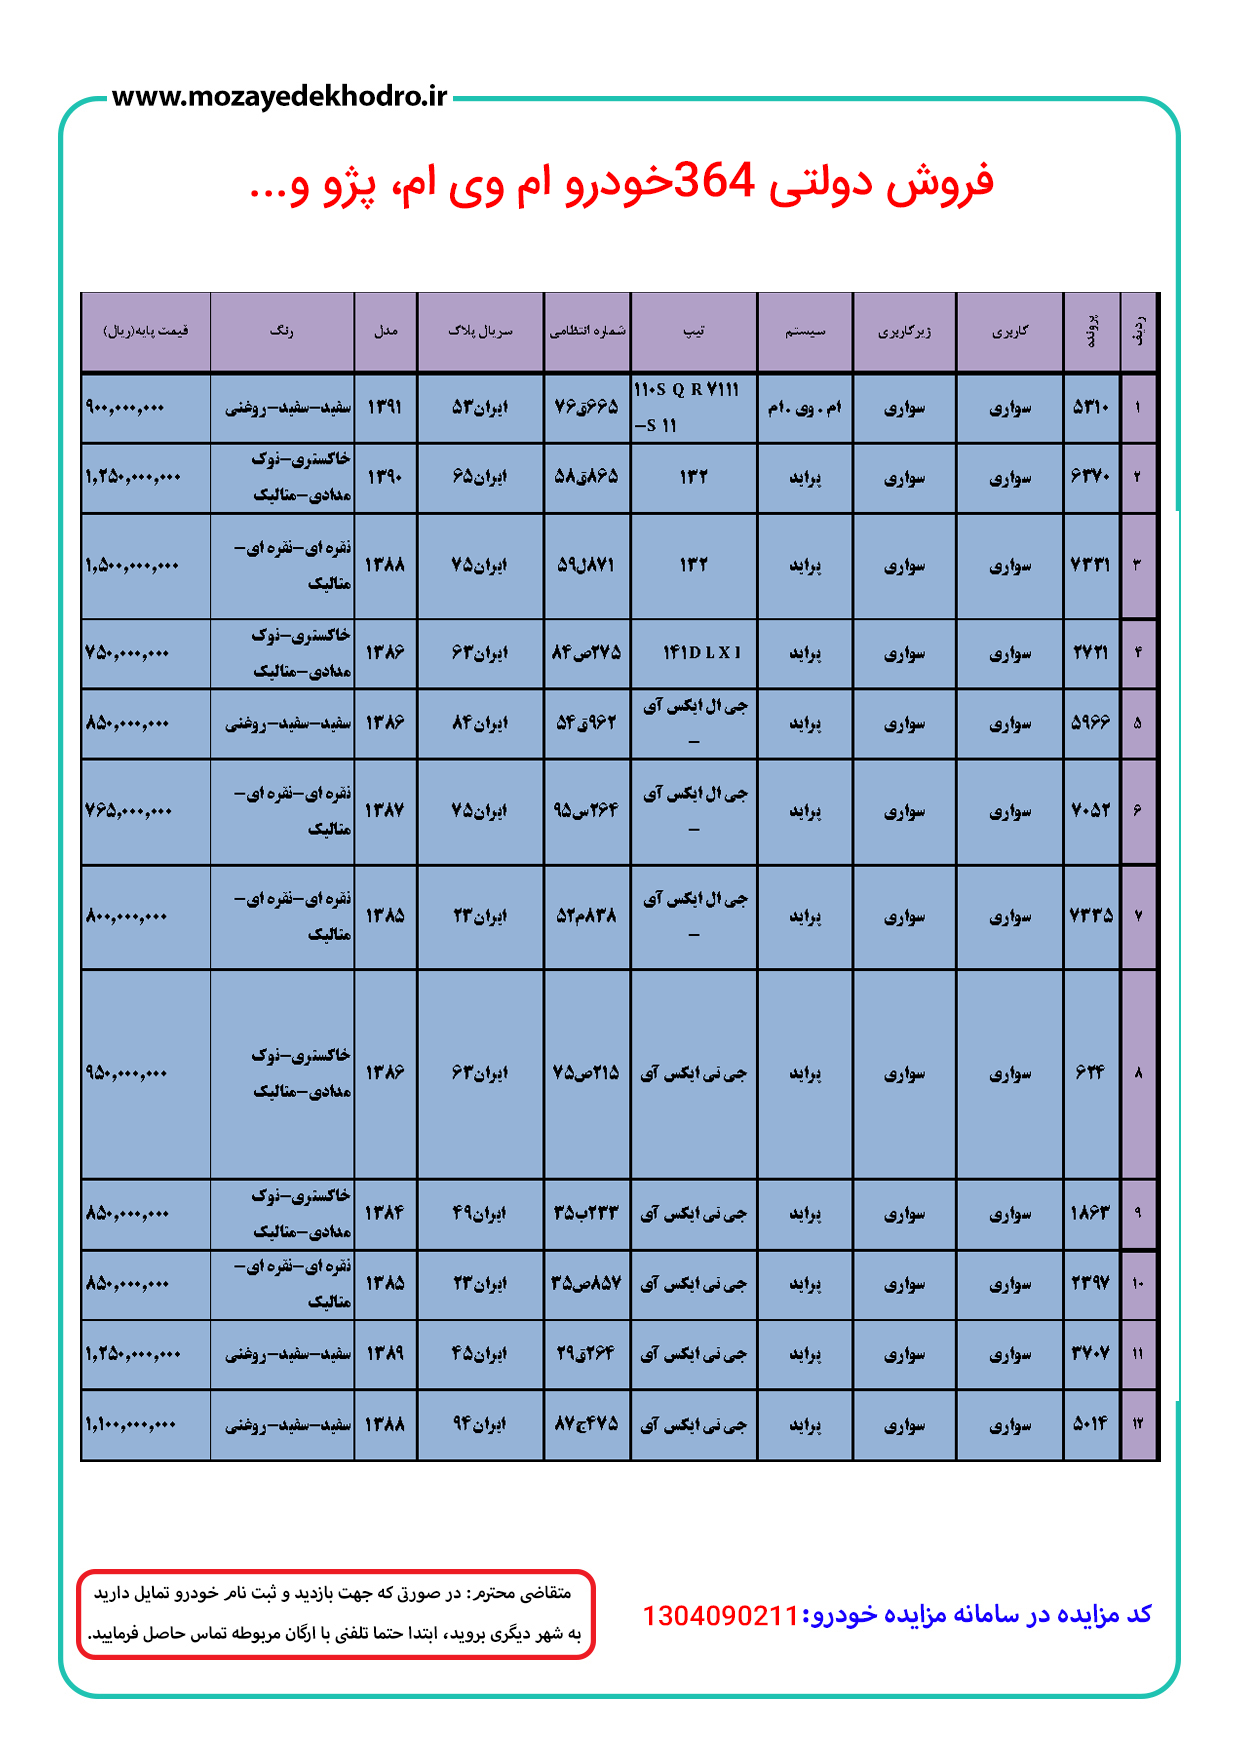 www.mozayedekhodro.ir
فروش دولتی 364خودرو ام وی ام، پژو و...
ردیف پرونده کاربری زیرکاربری سیستم تیپ شماره انتظامی سریال پلاک مدل رنگ قیمت پایه(ریال)
۱ ۵۳۱۰ سواری سواری ام . وی . ام ۱۱۰S Q R ۷۱۱۱ –S ۱۱ ۶۶۵ق۷۶ ایران۵۳ ۱۳۹۱ سفید–سفید–روغنی ۹۰۰,۰۰۰,۰۰۰
۲ ۶۳۷۰ سواری سواری پراید ۱۳۲ ۸۶۵ق۵۸ ایران۶۵ ۱۳۹۰ خاکستری–نوک مدادی–متالیک ۱,۲۵۰,۰۰۰,۰۰۰
۳ ۷۳۳۱ سواری سواری پراید ۱۳۲ ۸۷۱ل۵۹ ایران۷۵ ۱۳۸۸ نقره ای–نقره ای– متالیک ۱,۵۰۰,۰۰۰,۰۰۰
۴ ۲۷۲۱ سواری سواری پراید ۱۴۱D L X I ۲۷۵ص۸۴ ایران۶۳ ۱۳۸۶ خاکستری–نوک مدادی–متالیک ۷۵۰,۰۰۰,۰۰۰
۵ ۵۹۶۶ سواری سواری پراید جی ال ایکس آی – ۹۶۲ق۵۴ ایران۸۴ ۱۳۸۶ سفید–سفید–روغنی ۸۵۰,۰۰۰,۰۰۰
۶ ۷۰۵۲ سواری سواری پراید جی ال ایکس آی – ۲۶۴س۹۵ ایران۷۵ ۱۳۸۷ نقره ای–نقره ای– متالیک ۷۶۵,۰۰۰,۰۰۰
۷ ۷۳۳۵ سواری سواری پراید جی ال ایکس آی – ۸۳۸م۵۲ ایران۲۳ ۱۳۸۵ نقره ای–نقره ای– متالیک ۸۰۰,۰۰۰,۰۰۰
۸ ۶۲۴ سواری سواری پراید جی تی ایکس آی ۲۱۵ص۷۵ ایران۶۳ ۱۳۸۶ خاکستری–نوک مدادی–متالیک ۹۵۰,۰۰۰,۰۰۰
۹ ۱۸۶۳ سواری سواری پراید جی تی ایکس آی ۲۳۳ب۳۵ ایران۴۹ ۱۳۸۴ خاکستری–نوک مدادی–متالیک ۸۵۰,۰۰۰,۰۰۰
۱۰ ۲۳۹۷ سواری سواری پراید جی تی ایکس آی ۸۵۷ص۳۵ ایران۲۳ ۱۳۸۵ نقره ای–نقره ای– متالیک ۸۵۰,۰۰۰,۰۰۰
۱۱ ۳۷۰۷ سواری سواری پراید جی تی ایکس آی ۲۶۴ق۲۹ ایران۴۵ ۱۳۸۹ سفید–سفید–روغنی ۱,۲۵۰,۰۰۰,۰۰۰
۱۲ ۵۰۱۴ سواری سواری پراید جی تی ایکس آی ۴۷۵ج۸۷ ایران۹۴ ۱۳۸۸ سفید–سفید–روغنی ۱,۱۰۰,۰۰۰,۰۰۰
کد مزایده در سامانه مزایده خودرو:1304090211
متقاضی محترم: در صورتی که جهت بازدید و ثبت نام خودرو تمایل دارید
به شهر دیگری بروید، ابتدا حتما تلفنی با ارگان مربوطه تماس حاصل فرمایید.